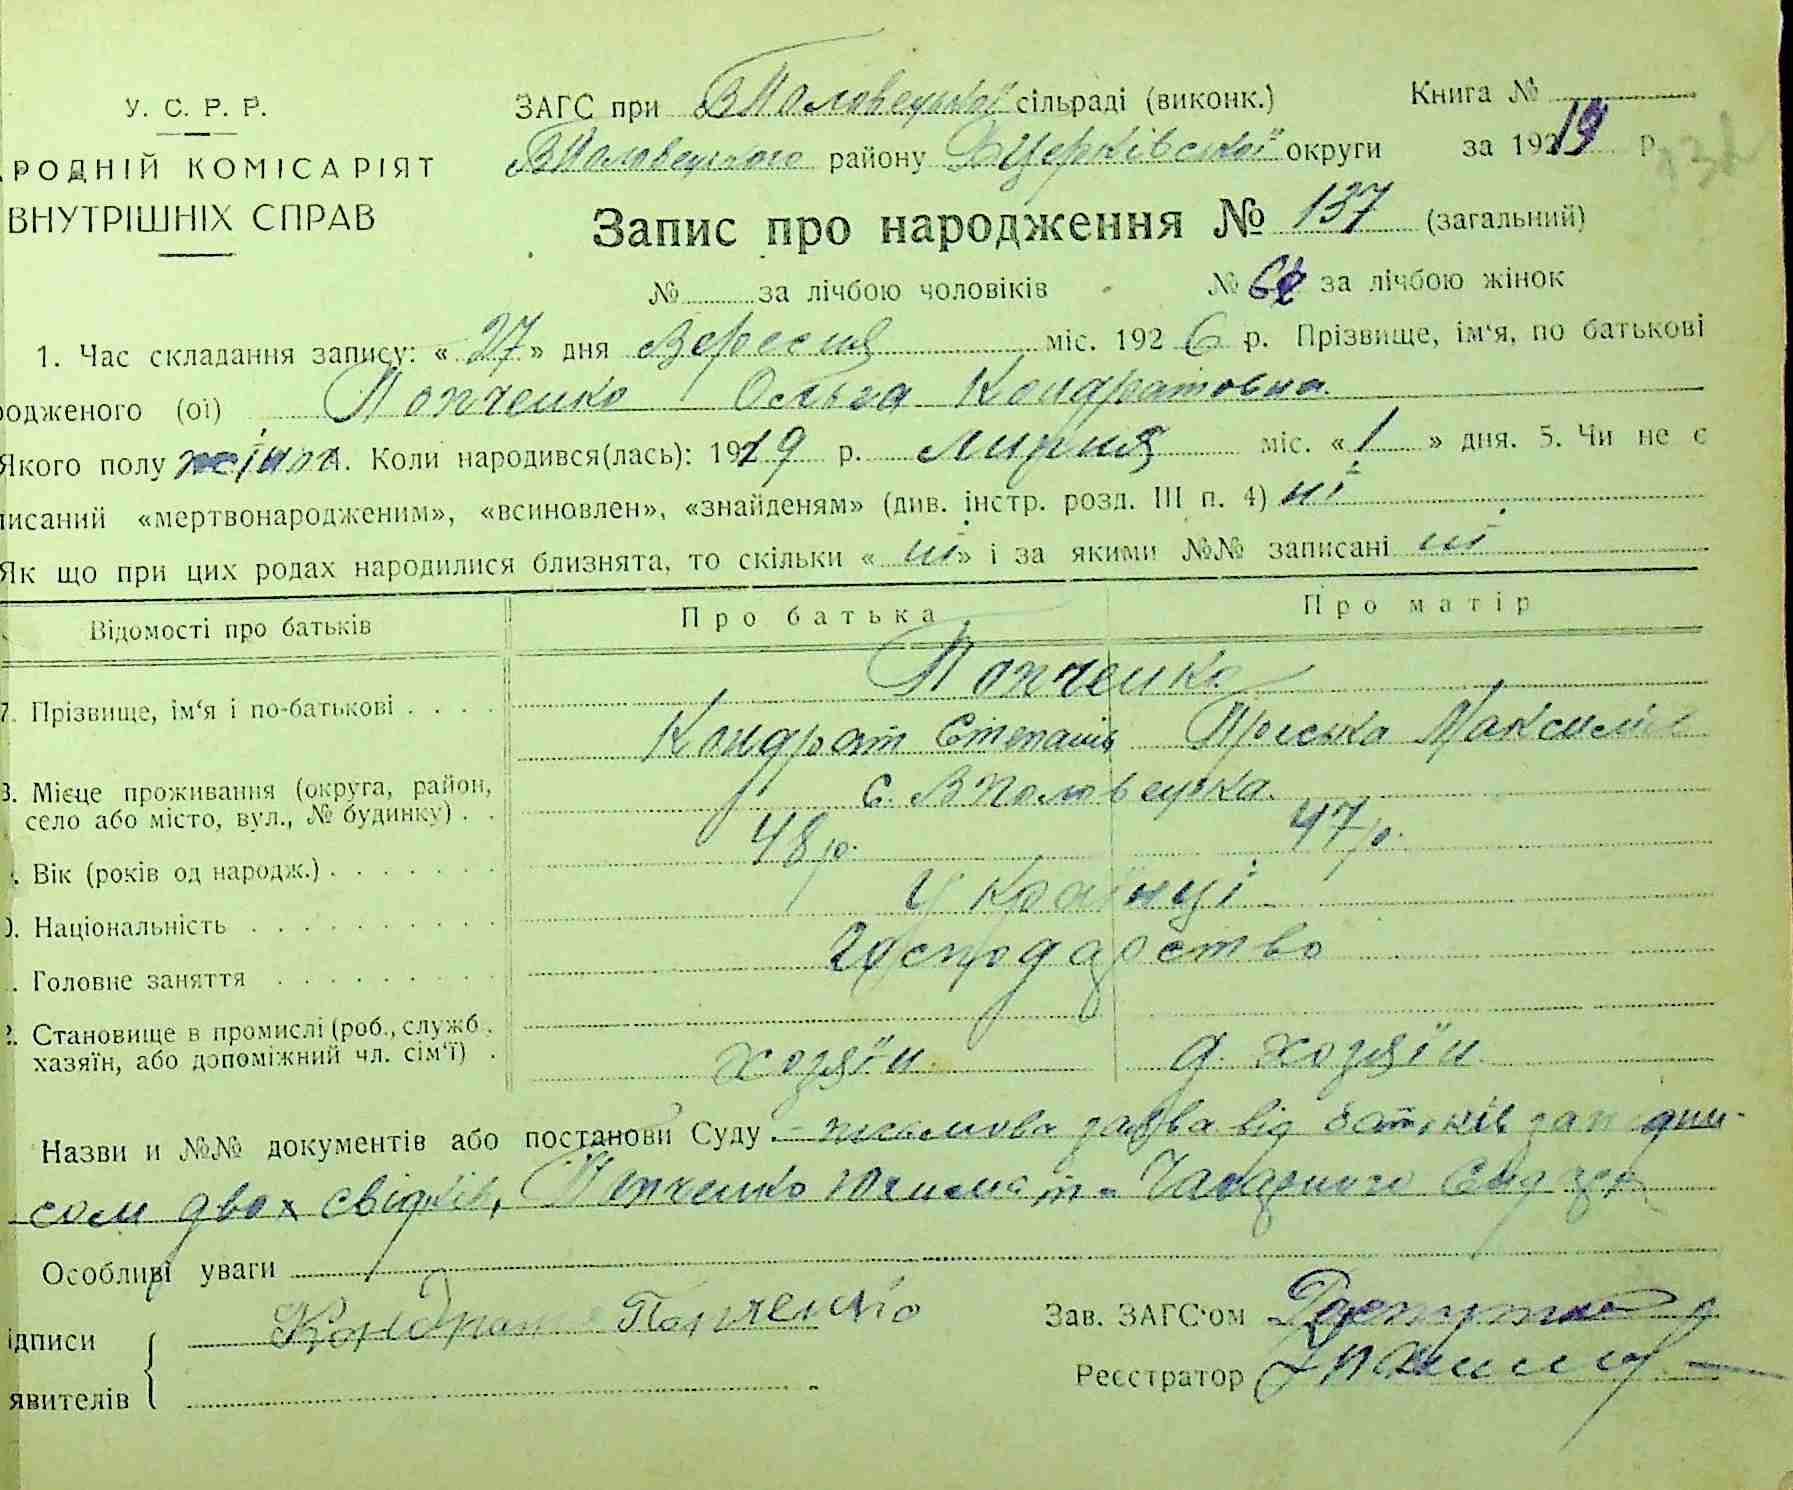 У. С. Р. Р.
РОДНІЙ КОМІСАРІЯТ
ВНУТРІШНІХ СПРАВ
ЗАГС при ВПоловецької сільраді (виконк.) Книга №
ВПоловецького району БЦерківської округи за 1919 р.
Запис про народження № 137 (загальний)
№ за лічбою чоловіків № за лічбою жінок
1. Час складання запису: « 27 » дня Вересня міс. 192 6 р. Прізвище, ім'я, по батькові
родженого (ої) Попченко Ольга Кондратовна
Якого полу жіноч. 4. Коли народився(лась): 1919 р. липня міс. « 1 » дня. 5. Чи не є
писаний «мертвонародженим», «всиновлен», «знайденям» (див. інстр. розд. III п. 4) ні
Як що при цих родах народилися близнята, то скільки « ні » і за якими №№ записані ні
Відомості про батьків Про батька Про матір
7. Прізвище, ім'я і по-батькові . . . . Попченко
Кондрат Степанів Пріська Максимів
8. Місце проживання (округа, район,
село або місто, вул., № будинку) . . с. ВПоловецька
Вік (років од народж.) . . . . . . . 48 р. 47 р.
0. Національність . . . . . . . . . . Українці
. Головне заняття . . . . . . . . . господарство
2. Становище в промислі (роб., служб.
хазяїн, або допоміжний чл. сім'ї) . хозяїн д. хозяїн
Назви и №№ документів або постанови Суду - письмова заява від батьків за підпи-
сом двох свідків, Попченко Юхима та
Особливі уваги
ідписи Кондрат Попченко Зав. ЗАГС'ом
явителів Реєстратор